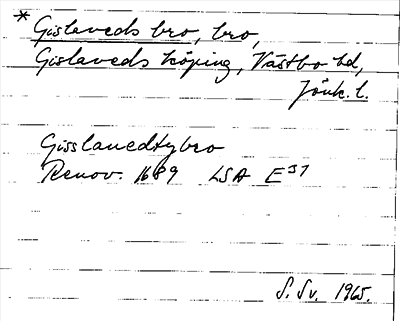 * Gislaveds bro, bro,
Gislaveds köping, Västbo hd,
Jönk. l.
Gisslanedtybro
Renov. 1689 LSA E31
S. Sv. 1965.